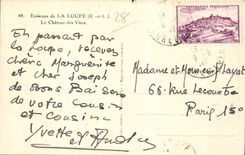 68. Environs de LA LOUPE (E.-et-L.)
Le Château des Vaux
28
En passant par
la Loupe, recevez
chère Marguerite
et cher Joseph
de bons Baisers
de votre cousin
et cousine
Yvette et
Madame et Monsieur
66 Rue Lecourbe
Paris 15